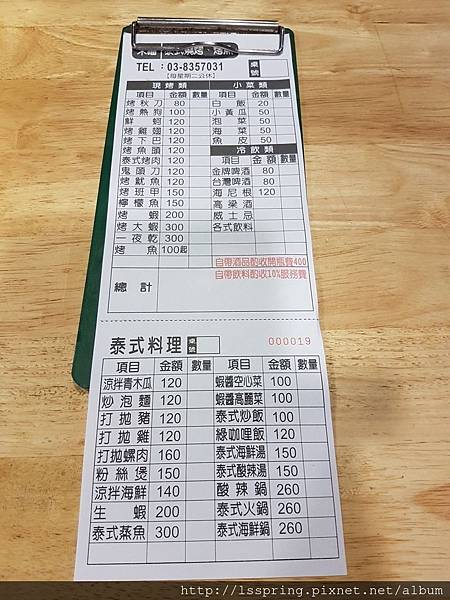 泰式燒烤、烤魚
TEL：03-8357031 桌號
【每星期二公休】
現烤類 小菜類
項目 金額 數量 項目 金額 數量
烤秋刀 80 白飯 20
烤熱狗 100 小黃瓜 50
鮮蚵 120 泡菜 50
烤雞翅 120 海菜 50
烤下巴 120 魚皮 50
烤魚頭 120 冷飲類
泰式烤肉 120 項目 金額 數量
鬼頭刀 120 金牌啤酒 80
烤魷魚 150 台灣啤酒 80
烤班甲 150 海尼根 120
檸檬魚 150 高梁酒
烤蝦 200 威士忌
烤大蝦 300 各式飲料
一夜乾 300
烤魚 100起
自帶酒品酌收開瓶費400
自帶飲料酌收10%服務費
總計
泰式料理 桌號 000019
項目 金額 數量 項目 金額 數量
涼拌青木瓜 120 蝦醬空心菜 100
炒泡麵 120 蝦醬高麗菜 100
打拋豬 120 泰式炒飯 100
打拋雞 120 綠咖哩飯 120
打拋螺肉 160 泰式海鮮湯 150
粉絲煲 150 泰式酸辣湯 150
涼拌海鮮 140 酸辣鍋 260
生蝦 200 泰式火鍋 260
泰式蒸魚 300 泰式海鮮鍋 260
http://lsspring.pixnet.net/album